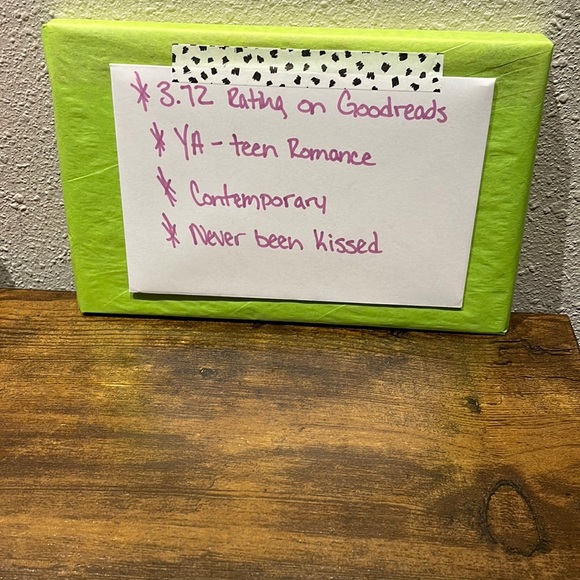 * 3.72 Rating on Goodreads
* YA - teen Romance
* Contemporary
* Never been Kissed